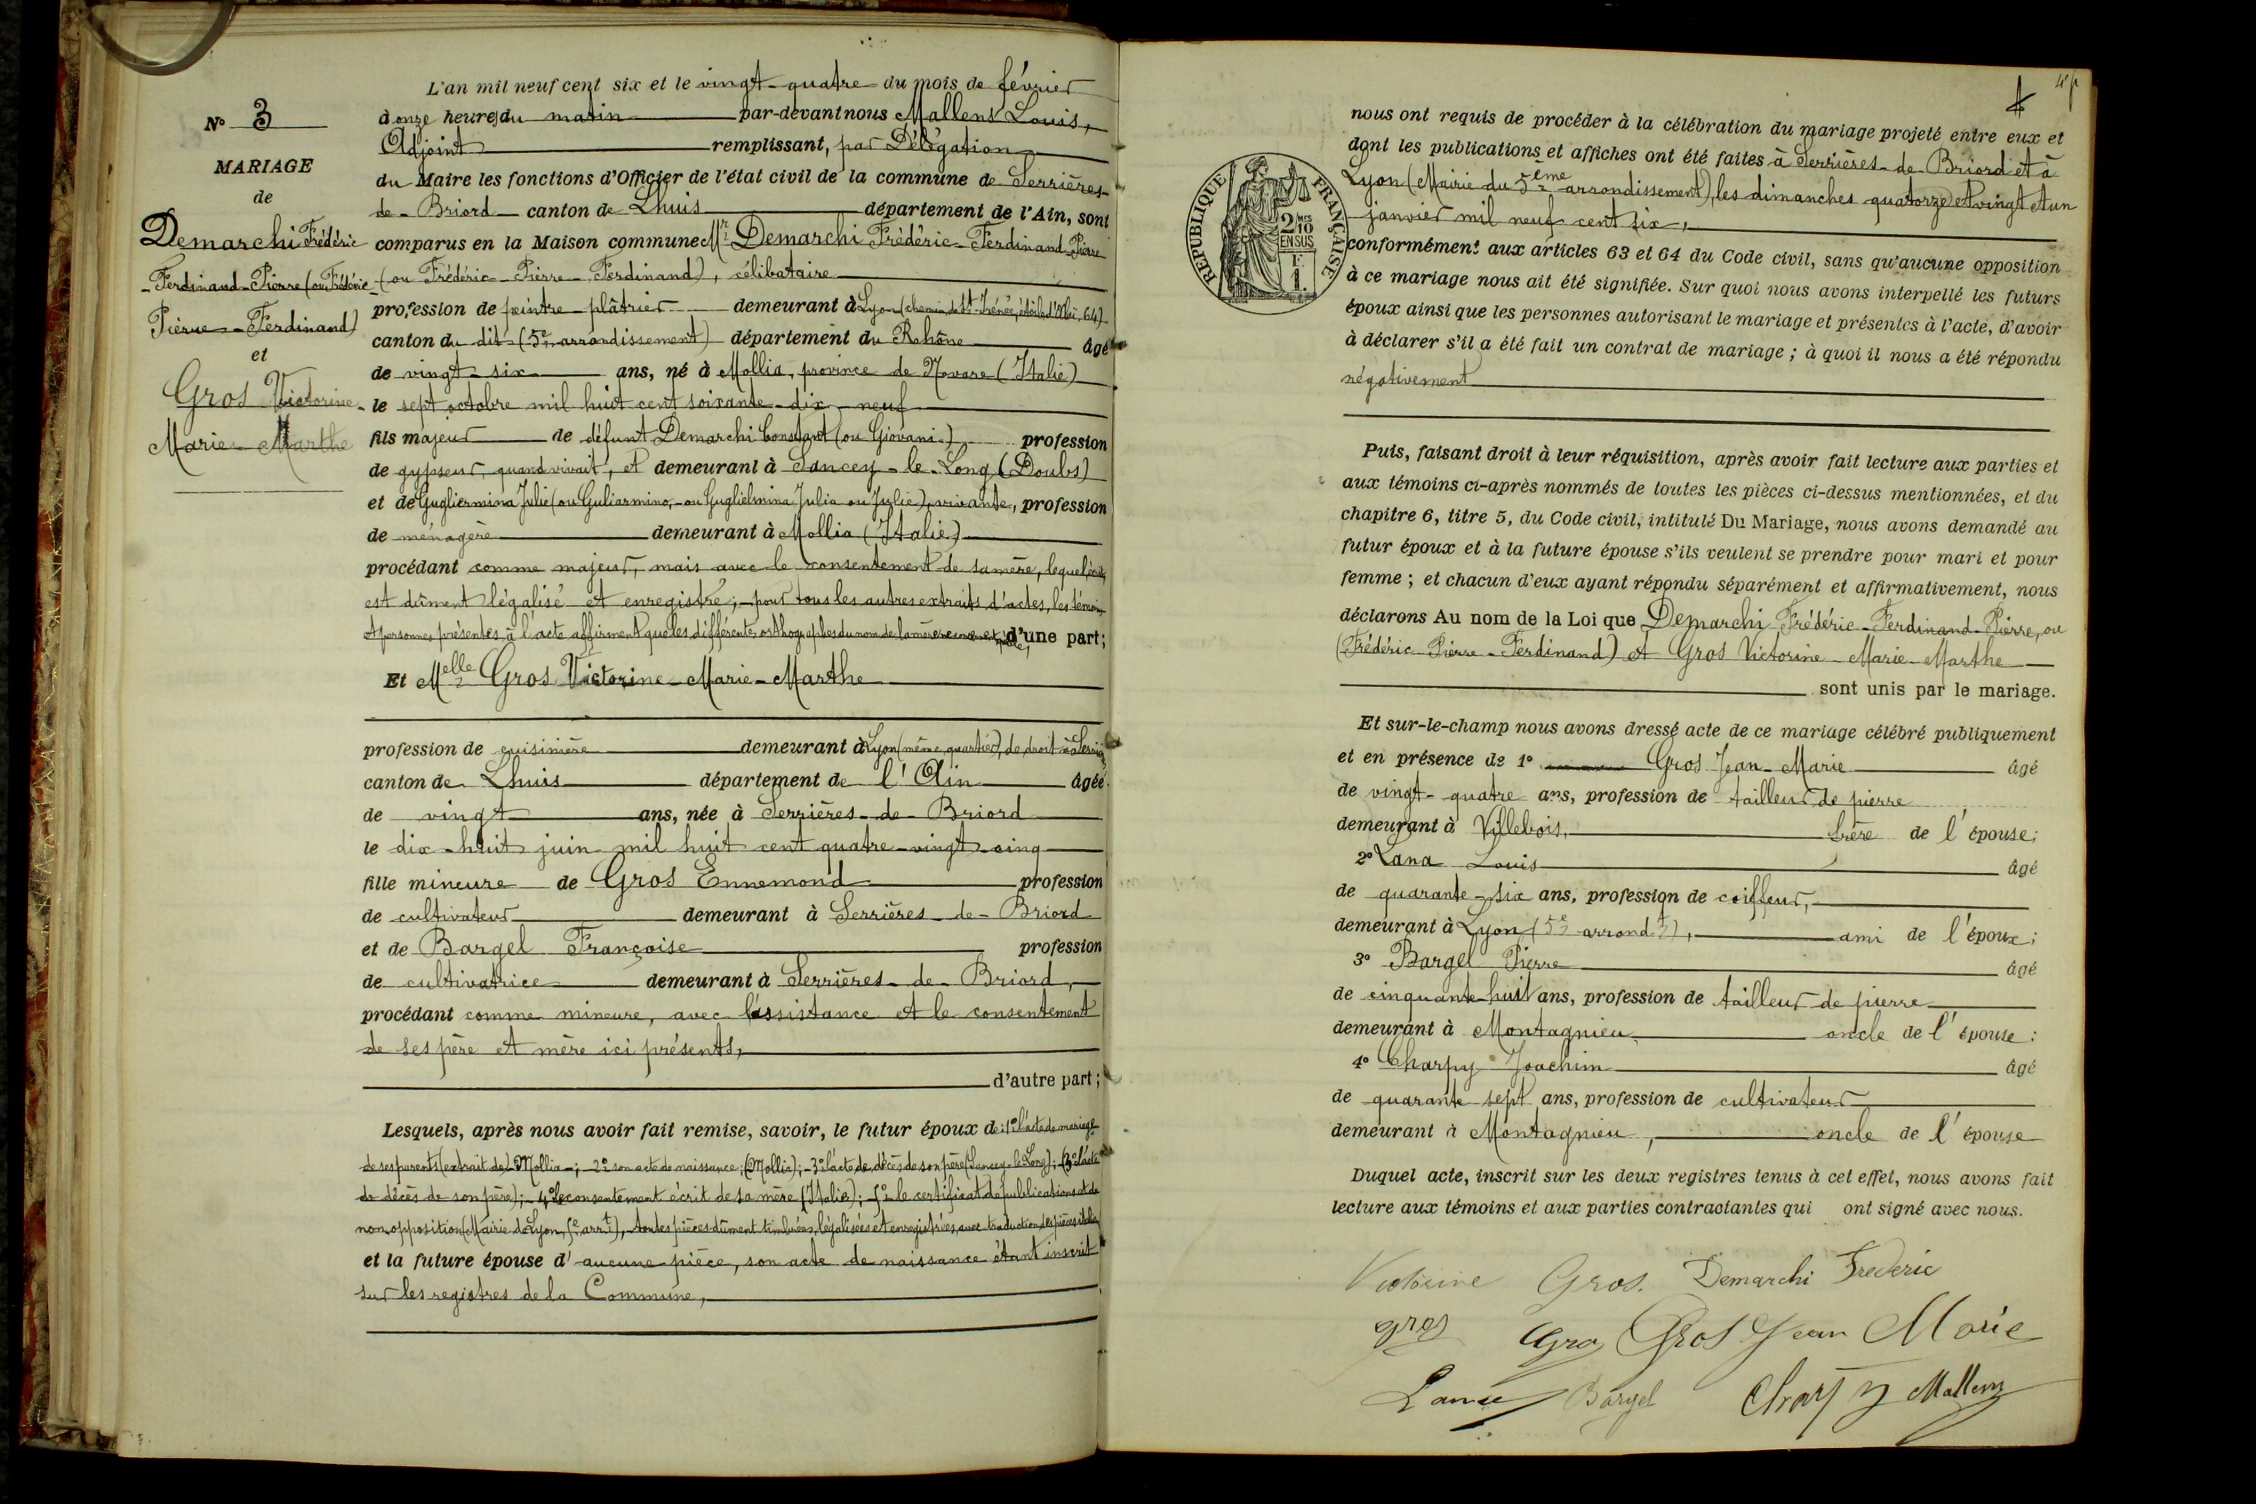 L'an mil neuf cent six et le vingt-quatre du mois de février
N° 3
à onze heures du matin par-devant nous Mallens Louis,
Adjoint remplissant, par Délégation
MARIAGE
du Maire les fonctions d'Officier de l'état civil de la commune de Serrières-
de
de-Briord canton de Lhuis département de l'Ain, sont
Demarchi Frédéric
comparus en la Maison commune Mr Demarchi Frédéric-Ferdinand-Pierre
-Ferdinand-Pierre (ou Frédéric
(ou Frédéric-Pierre-Ferdinand), célibataire
Pierre-Ferdinand)
profession de peintre-plâtrier demeurant à Lyon (chemin de St-Irénée, étoile d'Alaï, 64)
et
canton du dit (5e arrondissement) département du Rhône âgé
Gros Victorine-
de vingt-six ans, né à Mollia, province de Novare (Italie)
le sept octobre mil huit cent soixante-dix-neuf
Marie-Marthe
fils majeur de défunt Demarchi Constant (ou Giovani) profession
de gypseur, quand vivait, et demeurant à Sancey-le-Long (Doubs)
et de Gugliermina Julie (ou Guliarmino,-ou Guglielmina Julia ou Julie), vivante, profession
de ménagère demeurant à Mollia (Italie)
procédant comme majeur, mais avec le consentement de sa mère, lequel, écrit,
est dûment légalisé et enregistré;-pour tous les autres extraits d'actes, les témoins
et personnes présentes à l'acte affirment que les différentes orthographes du nom de la mère d'une part;
Et Melle Gros Victorine-Marie-Marthe
profession de cuisinière demeurant à Lyon (même quartier), de droit à Serrières
canton de Lhuis département de l'Ain âgée
de vingt ans, née à Serrières-de-Briord
le dix-huit juin mil huit cent quatre-vingt-cinq
fille mineure de Gros Ennemond profession
de cultivateur demeurant à Serrières-de-Briord
et de Bargel Françoise profession
de cultivatrice demeurant à Serrières-de-Briord,
procédant comme mineure, avec l'assistance et le consentement
de ses père et mère ici présents,
d'autre part;
Lesquels, après nous avoir fait remise, savoir, le futur époux de: 1° l'acte de mariage
de ses parents (extrait de) Mollia-; 2° son acte de naissance; (Mollia);-3° l'acte de décès de son père (Sancey-le-Long); (3° l'acte
de décès de son père);-4° le consentement écrit de sa mère (Italie);-5° le certificat de publications et de
non opposition (Mairie de Lyon, 5e arrt),-toutes pièces dûment timbrées, légalisées et enregistrées, avec traduction des pièces italiennes
et la future épouse d'aucune pièce, son acte de naissance étant inscrit
sur les registres de la Commune,
4
nous ont requis de procéder à la célébration du mariage projeté entre eux et
dont les publications et affiches ont été faites à Serrières-de-Briord et à
Lyon (Mairie du 5ème arrondissement), les dimanches quatorze et vingt et un
janvier mil neuf cent six,
RÉPUBLIQUE FRANÇAISE
2/10MES
EN SUS
1F.
conformément aux articles 63 et 64 du Code civil, sans qu'aucune opposition
à ce mariage nous ait été signifiée. Sur quoi nous avons interpellé les futurs
époux ainsi que les personnes autorisant le mariage et présentes à l'acte, d'avoir
à déclarer s'il a été fait un contrat de mariage; à quoi il nous a été répondu
négativement
Puis, faisant droit à leur réquisition, après avoir fait lecture aux parties et
aux témoins ci-après nommés de toutes les pièces ci-dessus mentionnées, et du
chapitre 6, titre 5, du Code civil, intitulé Du Mariage, nous avons demandé au
futur époux et à la future épouse s'ils veulent se prendre pour mari et pour
femme; et chacun d'eux ayant répondu séparément et affirmativement, nous
déclarons Au nom de la Loi que Demarchi Frédéric-Ferdinand-Pierre, ou
(Frédéric-Pierre-Ferdinand) et Gros Victorine-Marie-Marthe
sont unis par le mariage.
Et sur-le-champ nous avons dressé acte de ce mariage célébré publiquement
et en présence de 1° Gros Jean-Marie âgé
de vingt-quatre ans, profession de tailleur de pierre
demeurant à Villebois, frère de l'épouse;
2° Lana Louis âgé
de quarante-six ans, profession de coiffeur,
demeurant à Lyon (5e arrondt), ami de l'époux;
3° Bargel Pierre âgé
de cinquante-huit ans, profession de tailleur de pierre
demeurant à Montagnieu, oncle de l'épouse;
4° Charpy Joachim âgé
de quarante sept ans, profession de cultivateur
demeurant à Montagnieu, oncle de l'épouse
Duquel acte, inscrit sur les deux registres tenus à cet effet, nous avons fait
lecture aux témoins et aux parties contractantes qui ont signé avec nous.
Victorine Gros. Demarchi Frederic
gros Gros Gros Jean Marie
Lana Bargel Charpy Mallens